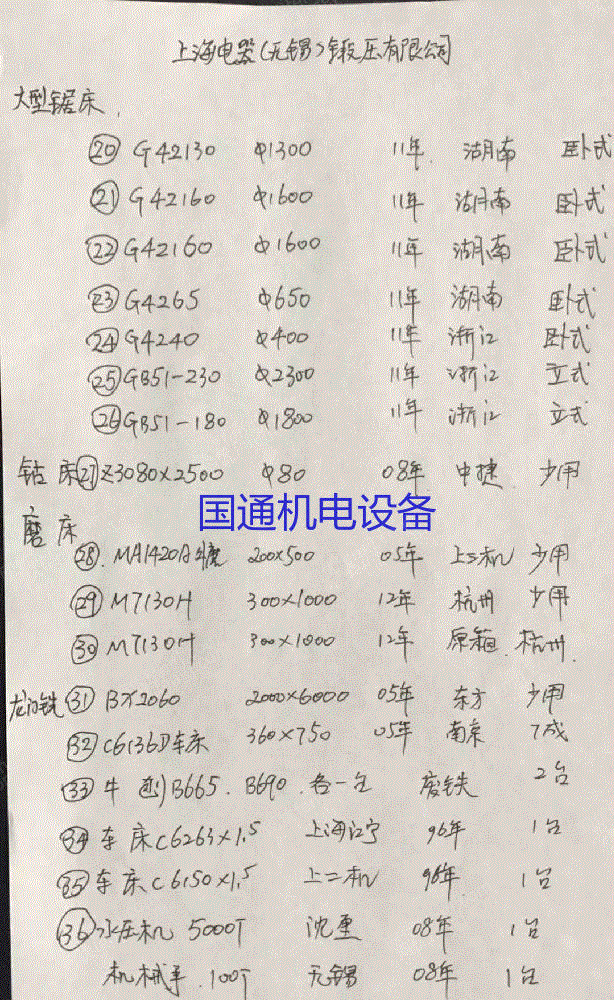 上海电器(无锡)锻压有限公司
大型锯床,
⑳ G42130 φ1300 11年. 湖南 卧式
㉑ G42160 φ1600 11年 湖南 卧式
㉒ G42160 φ1600 11年 湖南 卧式
㉓ G4265 φ650 11年 湖南 卧式
㉔ G4240 φ400 11年 浙江 卧式
㉕ GB51-230 φ2300 11年 浙江 立式
㉖ GB51-180 φ1800 11年 浙江 立式
钻床 ㉗ Z3080×2500 φ80 08年 中捷. 少用
国通机电设备
磨床
㉘. MA1420A 200×500 05年 上三机 少用
㉙ M7130H 300×1000 12年 杭州 少用
㉚ M7130H 300×1000 12年 原箱. 杭州.
龙门铣 ㉛ BX2060 2000×6000 05年 东方 少用
㉜ C6136D车床 360×750 05年 南京 7成
㉝ 牛刨 B665. B690. 各一台 废铁 2台
㉞ 车床C6263×1.5 上海江宁 96年 1台
㉟ 车床C6150×1.5 上二机 98年 1台
㊱ 水压机 5000T 沈重 08年 1台
机械手.100T 无锡 08年 1台